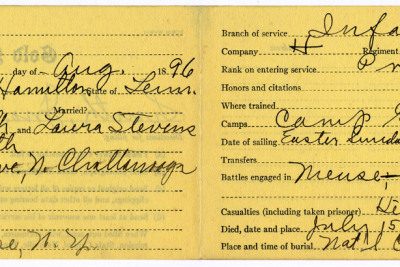 day of Aug. 1896
Hamilton State of Tenn.
Married?
and Laura Stevens
N. Chattanooga
N. Y.
Branch of service Infa
Company H Regiment
Rank on entering service Pr
Honors and citations
Where trained
Camps Camp
Date of sailing Easter Sunda
Transfers
Battles engaged in Meuse-
Casualties (including taken prisoner)
Died, date and place July 15
Place and time of burial Nat'l C